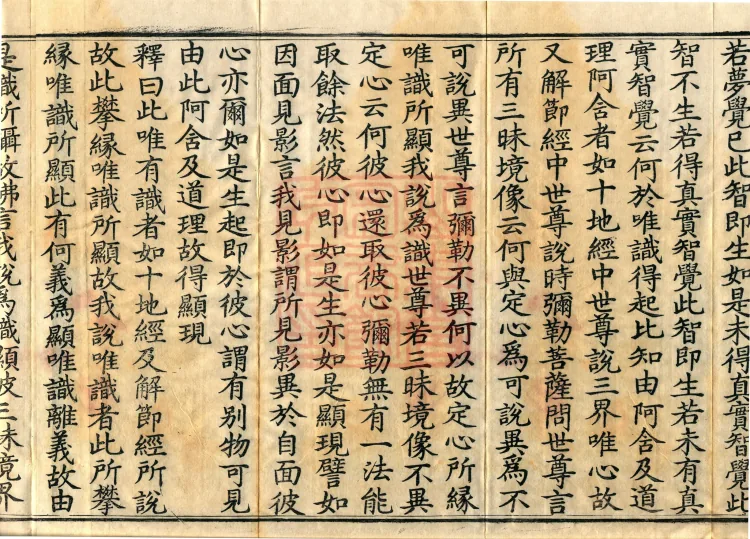 若夢覺已此智即生如是未得真實智覺此
智不生若得真實智覺此智即生若未有真
實智覺云何於唯識得起比知由阿含及道
理阿含者如十地經中世尊說三界唯心故
又解節經中世尊說時彌勒菩薩問世尊言
所有三昧境像云何與定心爲可說異爲不
可說異世尊言彌勒不異何以故定心所緣
唯識所顯我說爲識世尊若三昧境像不異
定心云何彼心還取彼心彌勒無有一法能
取餘法然彼心即如是生亦如是顯現譬如
因面見影言我見影謂所見影異於自面彼
心亦爾如是生起即於彼心謂有別物可見
由此阿含及道理故得顯現
釋曰此唯有識者如十地經及解節經所說
故此攀緣唯識所顯故我說唯識者此所攀
緣唯識所顯此有何義爲顯唯識離義故由
是識所攝故佛言我說爲識顯彼三昧境界